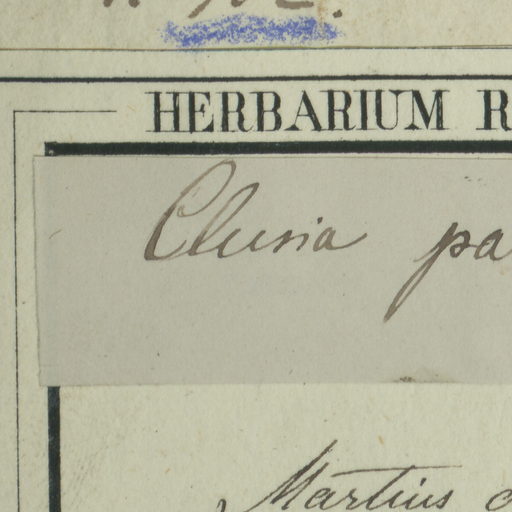 HERBARIUM R
Clusia pa
Martius